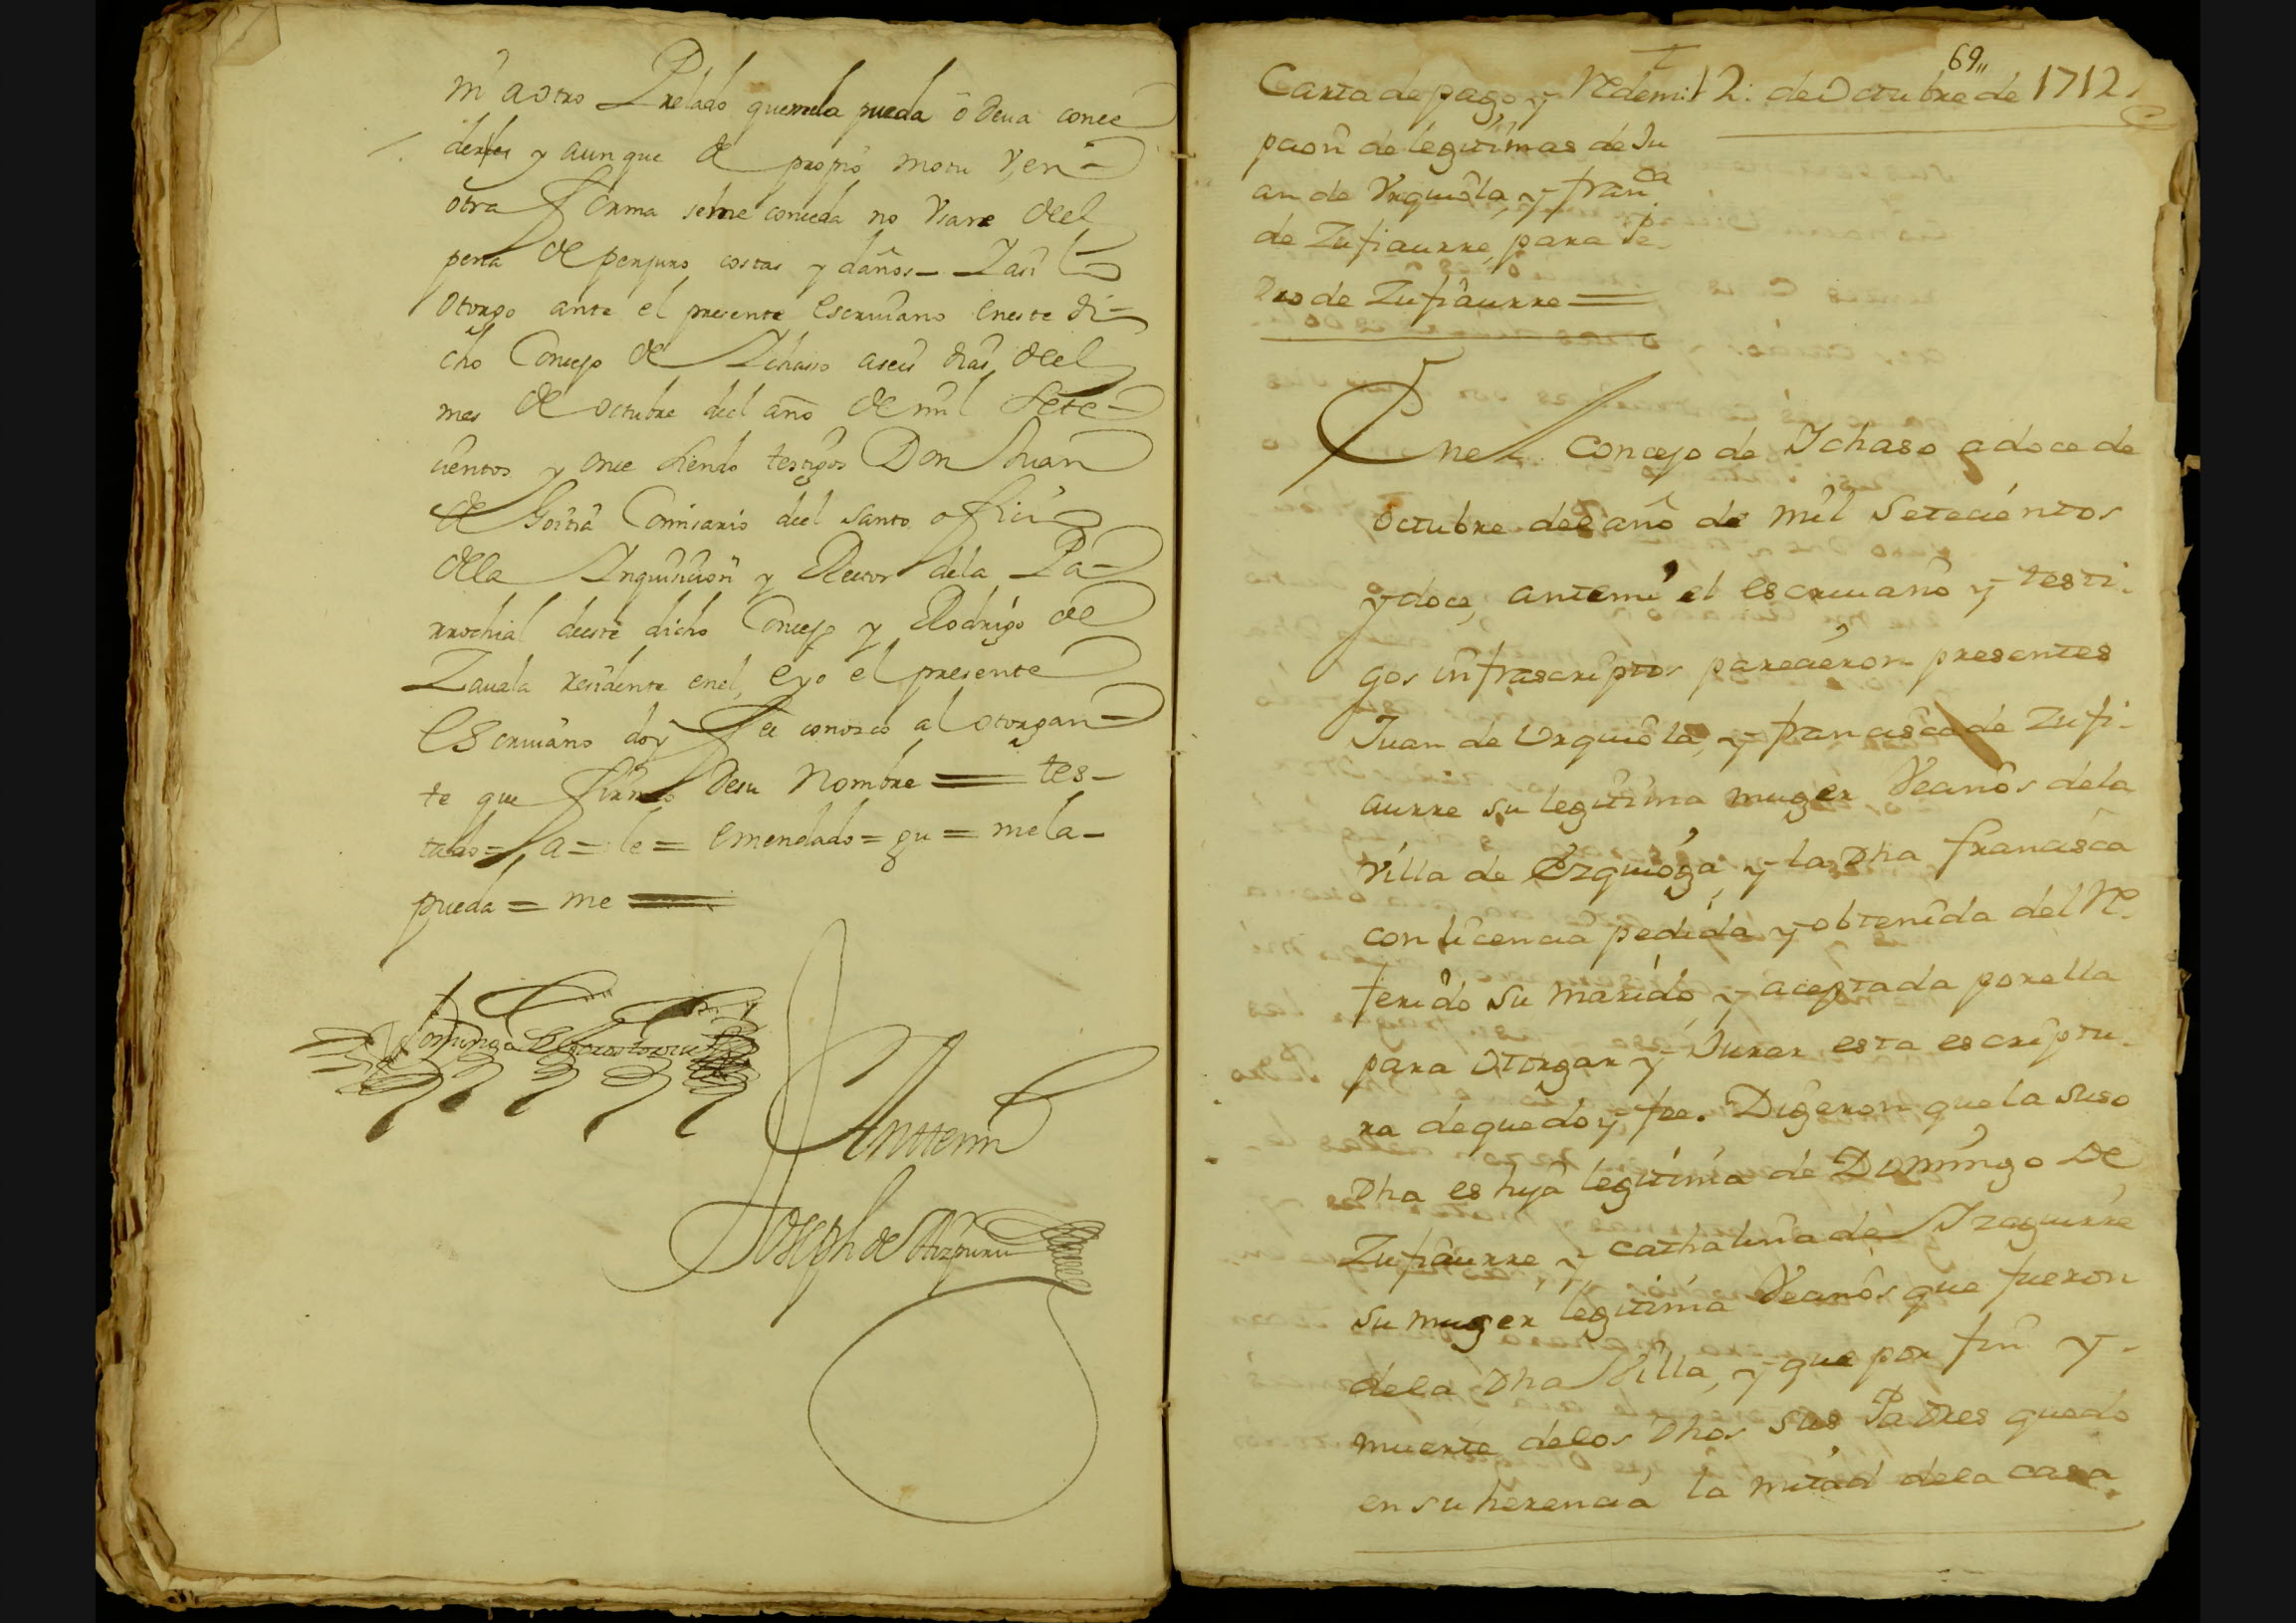 ni a otro Prelado que me la pueda o deva conce
derles y aunque de propio motu y, en
otra forma se me conceda no vsare del
pena de perjuro costas y daños _ I asi lo
otorgo ante el presente escriuano en este di-
cho Concejo de Ichaso a seis dias del
mes de octubre del año de mil sete-
cientos y once siendo testigos Don Juan
de Goitia Comisario del santo oficio
de la Inquisicion y Rector de la Pa-
rrochial deeste dicho Concejo y Rodrigo de
Zauala residente en el, e yo el presente
escriuano doy fee conozco al otorgan-
te que firmo de su nombre = tes-
tado = la = le = emendado = qu = me la -
pueda = me =
Domingo de
Ante mi
Joseph de Aizpuru
69
Carta de pago y Redemi
pcion de legitimas de Ju
an de Vrquiola, y franca
de Zufiaurre, para Pe-
dro de Zufiaurre =
12: de Octubre de 1712
En el Concejo de Ichaso a doce de
octubre del año de mil setecientos
y doce, ante mi el escriuano y testi-
gos infrascriptos parecieron presentes
Juan de Vrquiola, y francisca de Zufi-
aurre su legitima muger Vecinos de la
Villa de Ezquioga, y la Dha francisca
con licencia pedida y obtenida del Re-
ferido su marido, y aceptada por ella
para otorgar y Jurar esta escriptu-
ra de que doy fee. Digeron que la suso
Dha es hija legitima de Domingo De
Zufiaurre y Cathalina de Izaguirre
su muger legitima Vecinos que fueron
de la Dha Villa, y que por fin y-
muerte de los Dhos sus Padres quedo
en su herencia la mitad de la casa